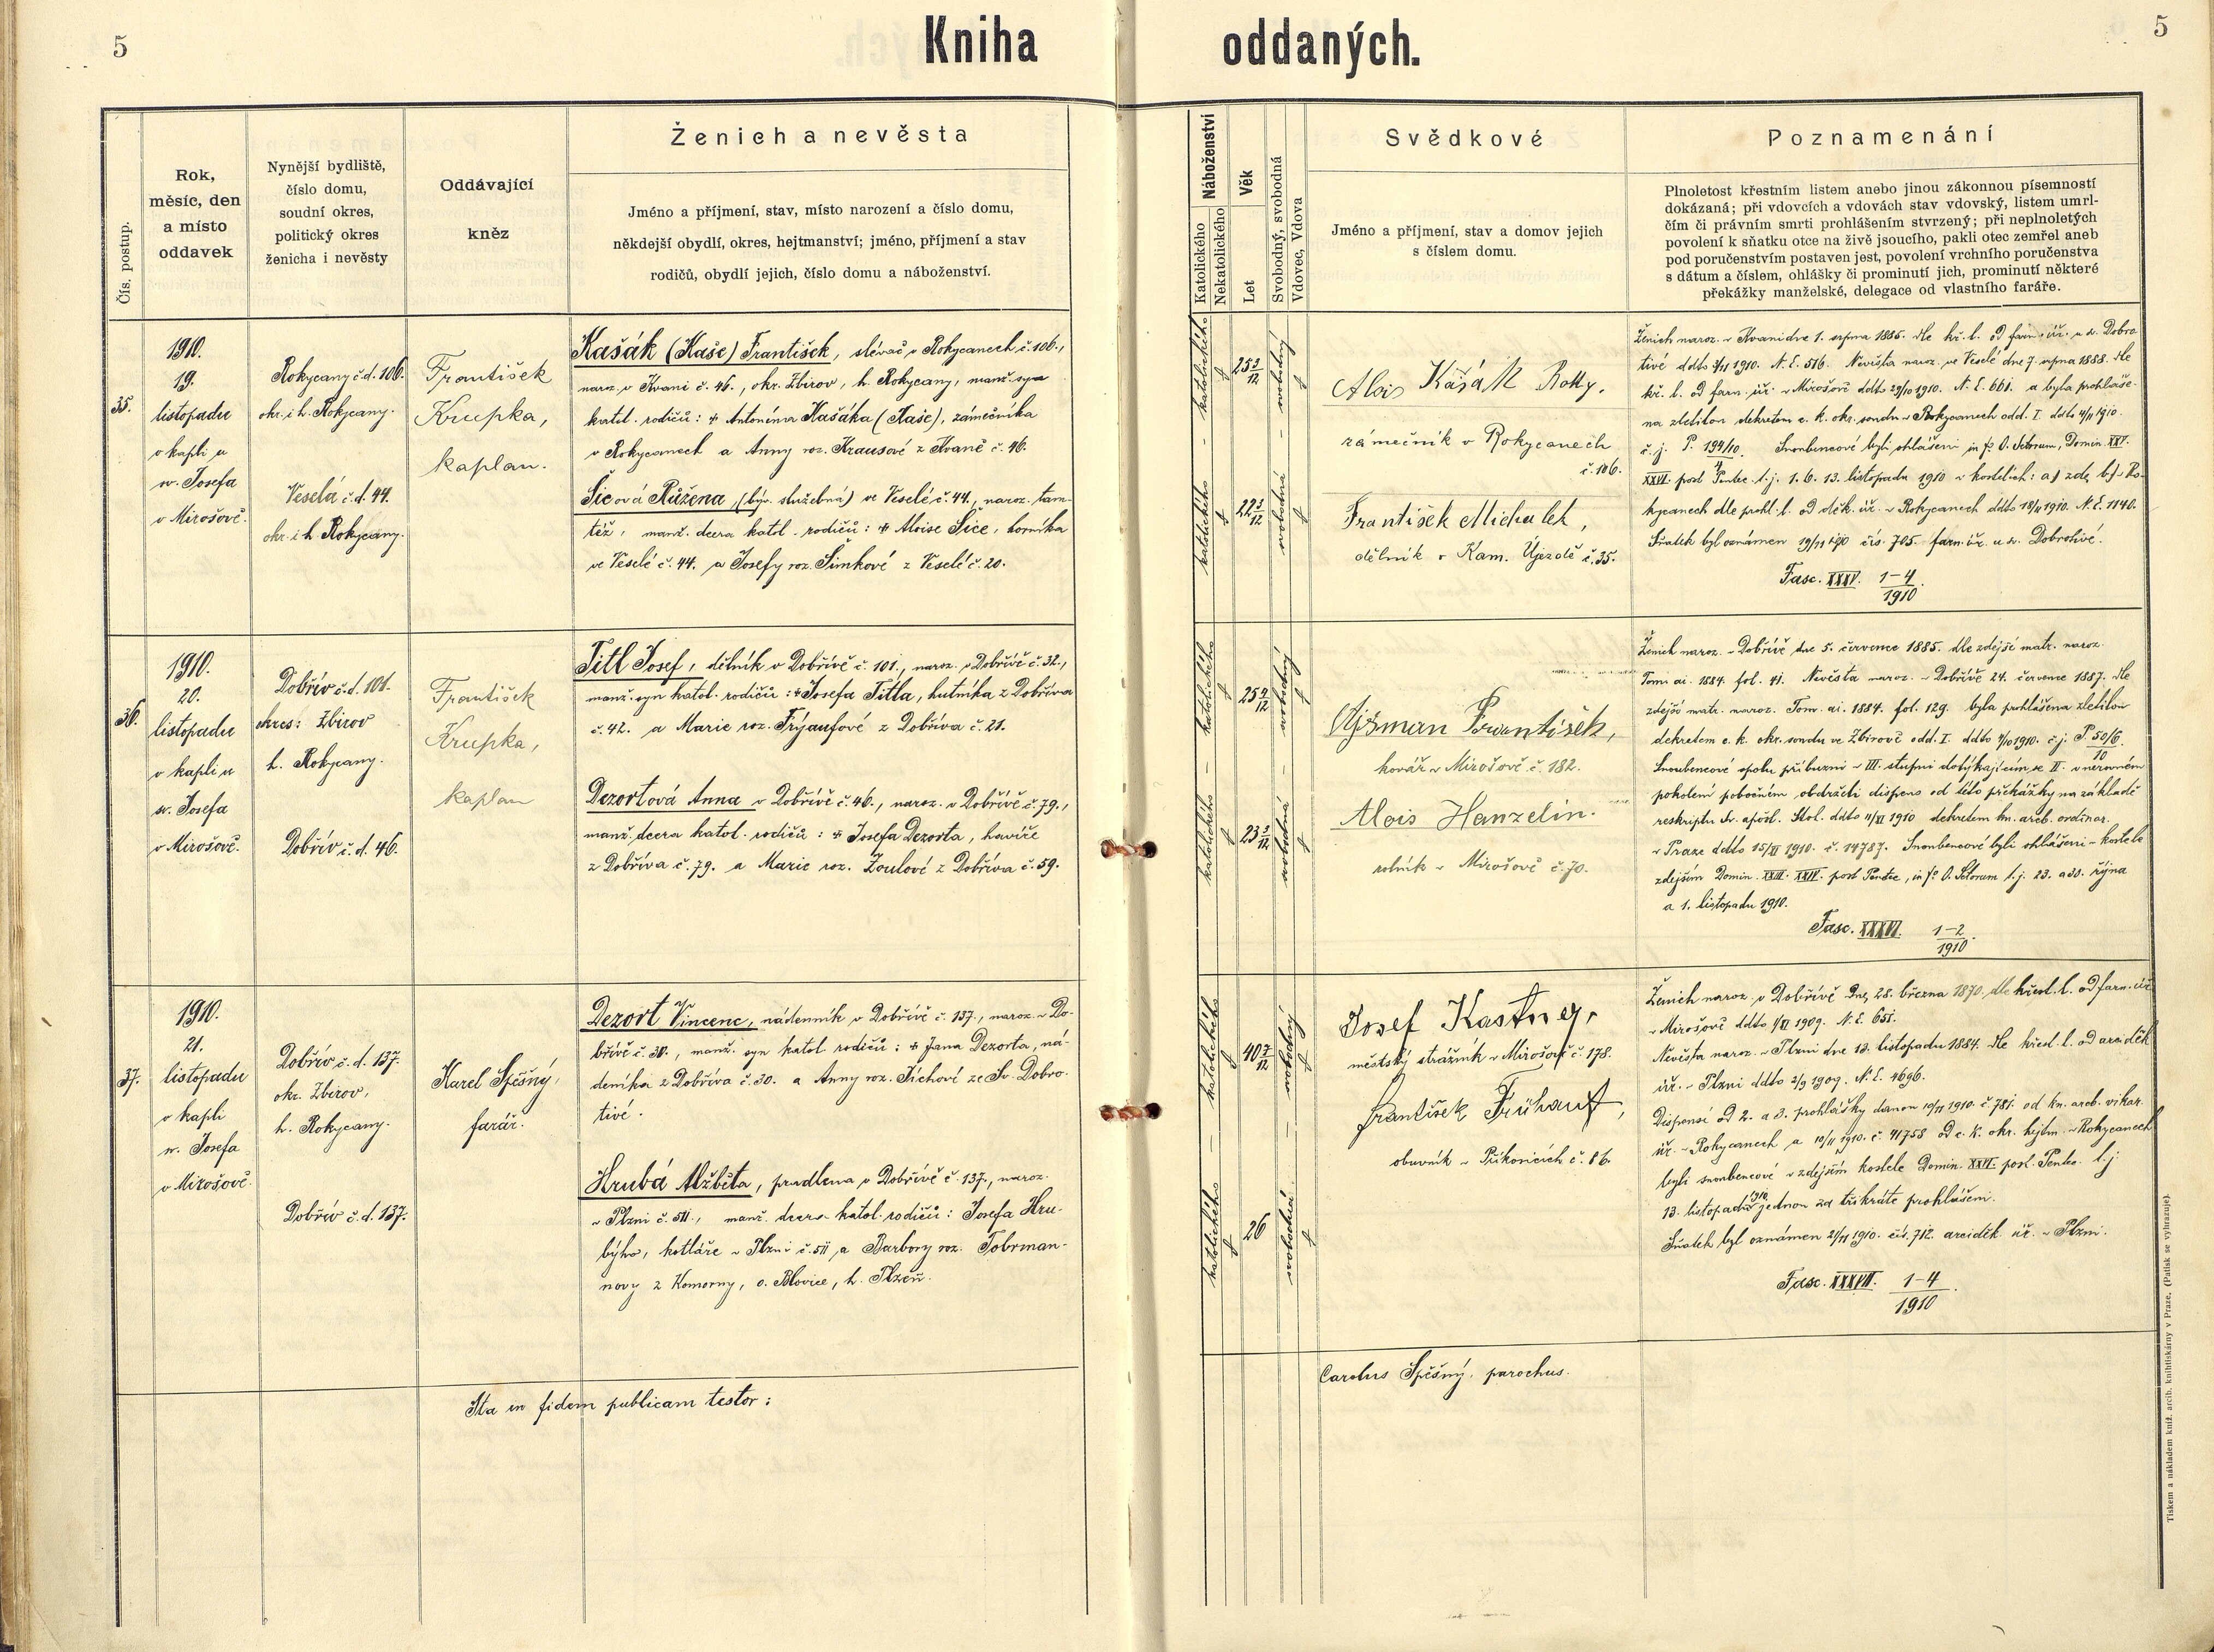 5
Kniha oddaných.
5
Čís. postup.
Rok,
měsíc, den
a místo
oddavek
Nynější bydliště,
číslo domu,
soudní okres,
politický okres
ženicha i nevěsty
Oddávající
kněz
Ženich a nevěsta
Jméno a příjmení, stav, místo narození a číslo domu,
někdejší obydlí, okres, hejtmanství; jméno, příjmení a stav
rodičů, obydlí jejich, číslo domu a náboženství.
Náboženství
Katolického
Nekatolického
Věk
Let
Svobodný, svobodná
Vdovec, Vdova
Svědkové
Jméno a příjmení, stav a domov jejich
s číslem domu.
Poznamenání
Plnoletost křestním listem anebo jinou zákonnou písemností
dokázaná; při vdovcích a vdovách stav vdovský, listem umrl-
čím či právním smrti prohlášením stvrzený; při neplnoletých
povolení k sňatku otce na živě jsoucího, pakli otec zemřel aneb
pod poručenstvím postaven jest, povolení vrchního poručenstva
s dátum a číslem, ohlášky či prominutí jich, prominutí některé
překážky manželské, delegace od vlastního faráře.
35.
1910.
19.
listopadu
v kapli u
sv. Josefa
v Mirošově.
Rokycany č.d. 106.
okr. i h. Rokycany.
Veselá č.d. 44.
okr. i h. Rokycany.
František
Krupka,
kaplan.
Kašák (Kaše) František, slévač v Rokycanech č. 106.,
naroz. v Kvani č. 46., okr. Zbirov, h. Rokycany, manž. syn
katol. rodičů: † Antonína Kašáka (Kaše), zámečníka
v Rokycanech a Anny roz. Krausové z Kvaně č. 46.
Šicová Růžena, (býv. služebná) ve Veselé č. 44., naroz. tam-
též, manž. dcera katol. rodičů: † Aloise Šice, horníka
ve Veselé č. 44. a Josefy roz. Šimkové z Veselé č. 20.
katolického
katolického
25 3/12
22 3/12
svobodný
svobodná
Alois Kašák Roky.
zámečník v Rokycanech
č. 106.
František Michalek,
dělník v Kam. Újezdě č. 35.
Ženich naroz. v Kvani dne 1. srpna 1885. dle kř. l. od farn. úř. u sv. Dobro-
tivé ddto 3/11 1910. N. E. 576. Nevěsta naroz. ve Veselé dne 7. srpna 1888. dle
kř. l. od farn. úř. v Mirošově ddto 29/10 1910. N. E. 661. a byla prohláše-
na zletilou dekretem c. k. okr. soudu v Rokycanech odd. I. ddto 4/11 1910.
č. j. P. 194/10. Snoubencové byli ohlášeni in f. O. Sctorum, Domin. XXV.
XXVI. post Pentec. t. j. 1. 6. 13. listopadu 1910 v kostelích: a) zde, b) v Ro-
kycanech dle prohl. l. od děk. úř. v Rokycanech ddto 18/11 1910. N. E. 1140.
Sňatek byl oznámen 19/11 1910 čís. 705. farn. úř. u sv. Dobrotivé.
Fasc. XXXV. 1-4
1910.
36.
1910.
20.
listopadu
v kapli u
sv. Josefa
v Mirošově.
Dobřív č.d. 101.
okres: Zbirov
h. Rokycany.
Dobřív č.d. 46.
František
Krupka,
kaplan
Titl Josef, dělník v Dobřívě č. 101., naroz. v Dobřívě č. 32.,
manž. syn katol. rodičů: † Josefa Titla, hutníka z Dobříva
č. 42. a Marie roz. Frýaufové z Dobříva č. 21.
Dezortová Anna v Dobřívě č. 46., naroz. v Dobřívě č. 79.,
manž. dcera katol. rodičů: † Josefa Dezorta, havíře
z Dobříva č. 79. a Marie roz. Zoulové z Dobříva č. 59.
katolického
katolického
25 4/12
23 3/12
svobodný
svobodná
František,
kovář v Mirošově č. 182.
Alois Hanzelín.
rolník v Mirošově č. 70.
Ženich naroz. v Dobřívě dne 5. července 1885. dle zdejší matr. naroz.
Tomi ai. 1884. fol. 41. Nevěsta naroz. v Dobřívě 24. července 1887. dle
zdejší matr. naroz. Tom. ai. 1884. fol. 129. byla prohlášena zletilou
dekretem c. k. okr. soudu ve Zbirově odd. I. ddto 4/10 1910. č. j. P 50/6
10
Snoubencové spolu příbuzni v III. stupni dotýkajícím se II. v nerovném
pokolení pobočném obdrželi dispens od této překážky na základě
reskriptu Sv. apošt. Stol. ddto 11/XI 1910 dekretem kn. arcib. ordinar.
v Praze ddto 15/XI 1910. č. 14787. Snoubencové byli ohlášeni v kostele
zdejším Domin. XXIII. XXIV. post Pentec., in f. O. Sctorum t. j. 23. a 30. října
a 1. listopadu 1910.
Fasc. XXXVI. 1-2
1910.
37.
1910.
21.
listopadu
v kapli
sv. Josefa
v Mirošově.
Dobřív č. d. 137.
okr. Zbirov,
h. Rokycany.
Dobřív č. d. 137.
Karel Spěšný,
farář.
Dezort Vincenc, nádenník v Dobřívě č. 137., naroz. v Do-
břívě č. 30., manž. syn katol. rodičů: † Jana Dezorta, ná-
deníka z Dobříva č. 30. a Anny roz. Tichové ze Sv. Dobro-
tivé.
Hrubá Alžběta, pradlena v Dobřívě č. 137., naroz.
v Plzni č. 511., manž. dcera katol. rodičů: Josefa Hru-
býho, kotláře v Plzni č. 511, a Barbory roz. Tobrman-
novy z Komorny, o. Blovice, h. Plzeň.
katolického
katolického
40 7/12
26
svobodný
svobodná
Josef Kastner,
městský strážník v Mirošově č. 178.
František Frühauf,
obuvník v Příkosicích č. 86.
Ženich naroz. v Dobřívě dne 28. března 1870. dle křest. l. od farn. úř.
v Mirošově ddto 1/XI 1909. N. E. 651.
Nevěsta naroz. v Plzni dne 13. listopadu 1884. dle křest. l. od arciděk.
úř. v Plzni ddto 2/9 1909. N. E. 4696.
Dispensí od 2. a 3. prohlášky danou 10/11 1910. č. 781. od kn. arcib. vikar.
úř. v Rokycanech a 10/11 1910. č. 41758 od c. k. okr. hejtm. v Rokycanech
byli snoubencové v zdejším kostele Domin. XXVI. post. Pentec. t. j.
13. listopadu 1910. jednou za třikráte prohlášeni.
Sňatek byl oznámen 21/11 1910. čís. 712. arciděk. úř. v Plzni.
Fasc. XXXVII. 1-4
1910.
Ita in fidem publicam testor:
Carolus Spěšný, parochus.
Tiskem a nákladem kníž. arcib. knihtiskárny v Praze. (Patisk se vyhrazuje).